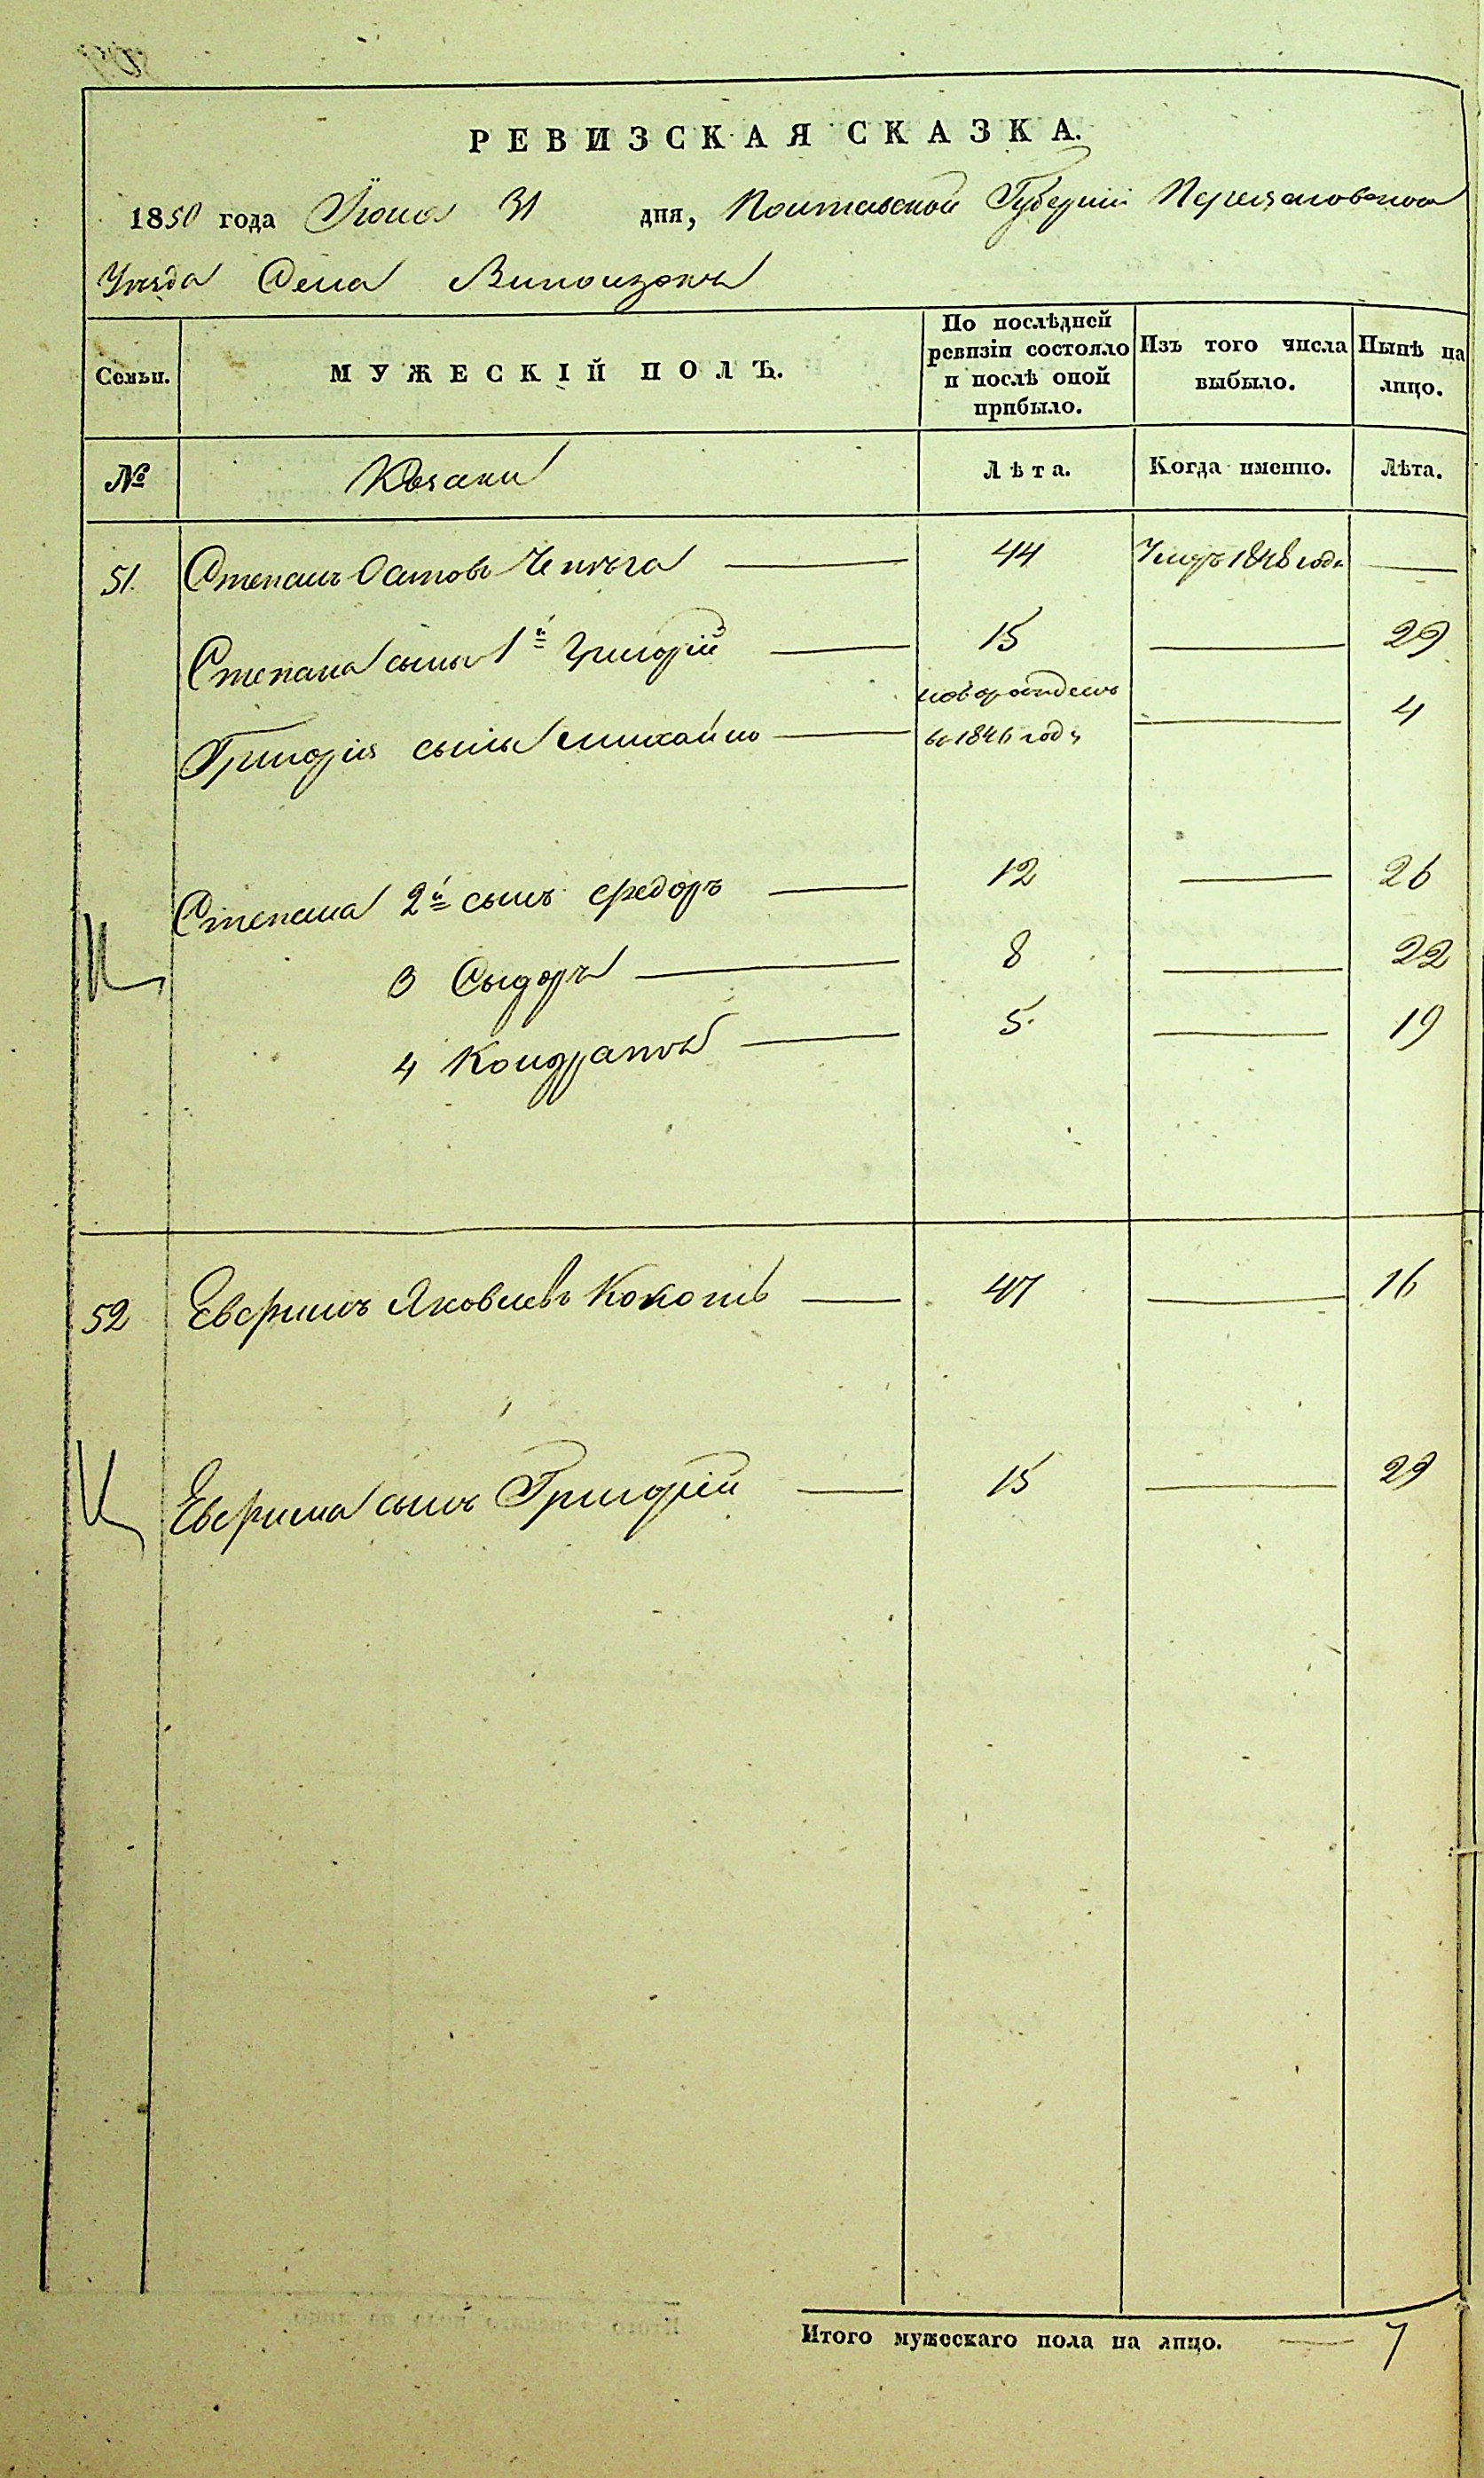 РЕВИЗСКАЯ СКАЗКА.
1850 года Июля 31 дня, Полтавской Губерніи Переяславскаго
Уезда Села
Семьи.
МУЖЕСКІЙ ПОЛЪ.
По послѣдней ревизіи состояло и послѣ оной прибыло.
Изъ того числа выбыло.
Нынѣ на лицо.
№
Козаки
Лѣта.
Когда именно.
Лѣта.
51. Степанъ Чепѣга — 44 Умеръ 1848 года —
Степана сынъ 1й Григорій — 15 — 29
Григорія сынъ Михайло — новорожденъ в 1846 году — 4
Степана 2й сынъ Федоръ — 12 — 26
3 Сыдоръ — 8 — 22
4 Кондратъ — 5. — 19
52 Евфимъ Яковлевъ — 47 — 16
Евфима сынъ Григорій — 15 — 29
Итого мужескаго пола на лицо. — 7